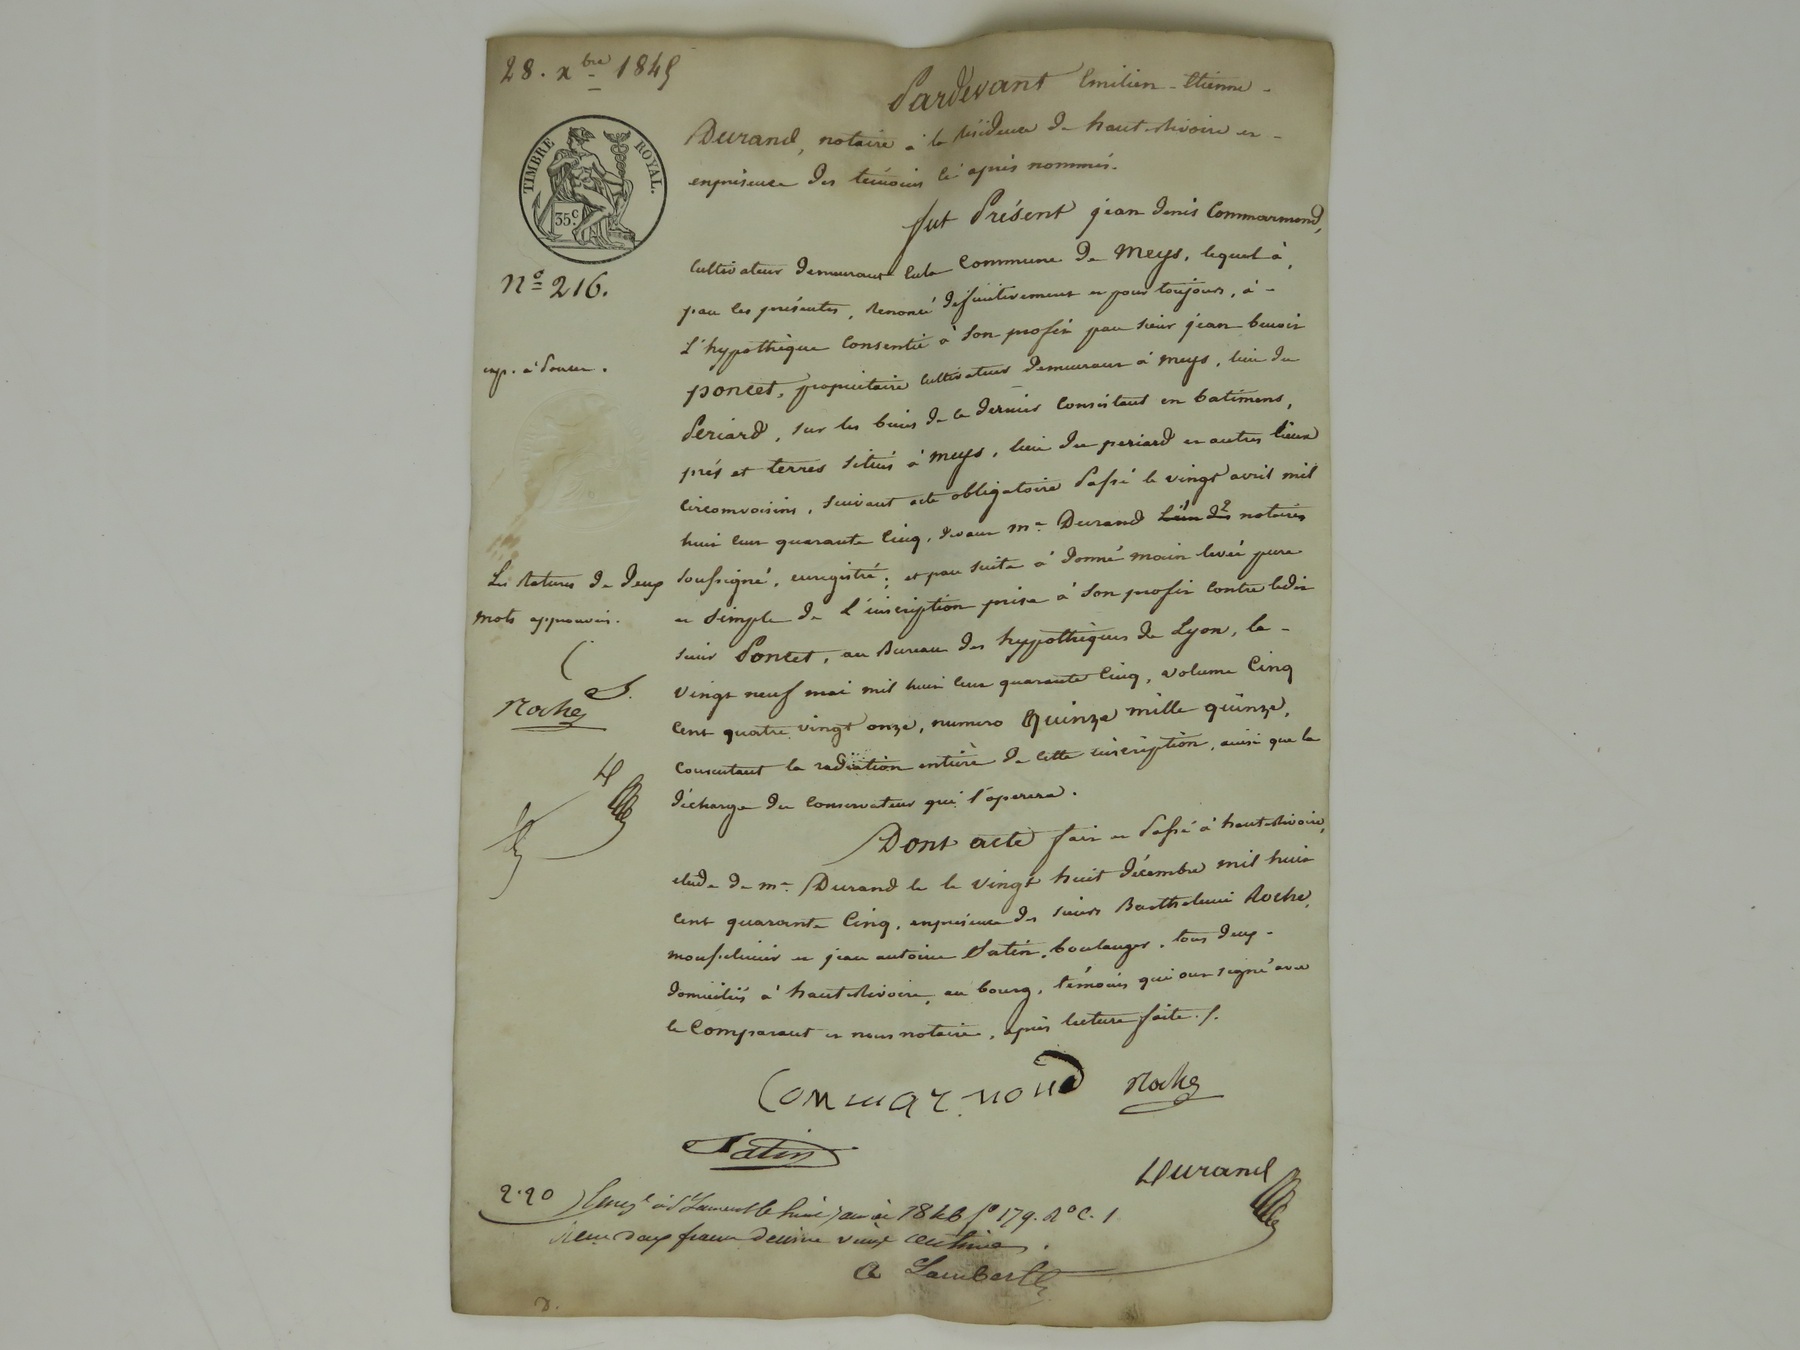 28. xbre 1845
Pardevant Emilien-Etienne-
Durand, notaire à la Résidence de haut-Rivoire en-
enprésence des temoins ci après nommés.
TIMBRE ROYAL.
35.c
No 216.
fut Présent jean denis Commarmond,
Cultivateur demeurant en la Commune de Meys, lequel à,
par les présentes, Renoncé définitivement et pour toujours, à-
L'hypothèque Consentie à Son profit par sieur jean benoit
exp. à Poncet.
poncet, propriétaire Cultivateur demeurant à meys, lieu du
Periard, sur les biens de ce dernier Consistant en batimens,
prés et terres Situés à meys, lieu du periard et autres lieux
Circomvoisins, Suivant acte obligatoire Passé le vingt avril mil
huit cent quarante Cinq, devant me. Durand L'un des notaires
Soussigné, enregistré; et par suite à donné main levée pure
Les Ratures de deux
mots approuvées.
et Simple de L'inscription prise à Son profit Contre ledit
sieur Poncet, au Bureau des hypothèques de Lyon, le-
Vingt neuf mai mil huit cent quarante Cinq, volume Cinq
Roche
Cent quatre vingt onze, numero Quinze mille quinze,
Consentant la radiation entière de Cette inscription, ainsi que la
décharge du Conservateur qui l'operera.
Dont acte fait et Passé à haut-Rivoire,
etude de me. Durand le le Vingt huit décembre mil huit
Cent quarante Cinq, enprésence des sieurs Barthelemi Roche,
mousselinier et jean antoine Satin, boulanger, tous deux-
domiciliés à haut-Rivoire, au bourg, témoins qui ont signé avec
le Comparant et nous notaire, après lecture faite./.
Commarmond
Roche
Satin
Durand
2.20
Enregé à St Laurent le huit janvier 1846 fo 179. Ro C. 1
Reçu deux francs décime vingt centimes.
Lambert
D.